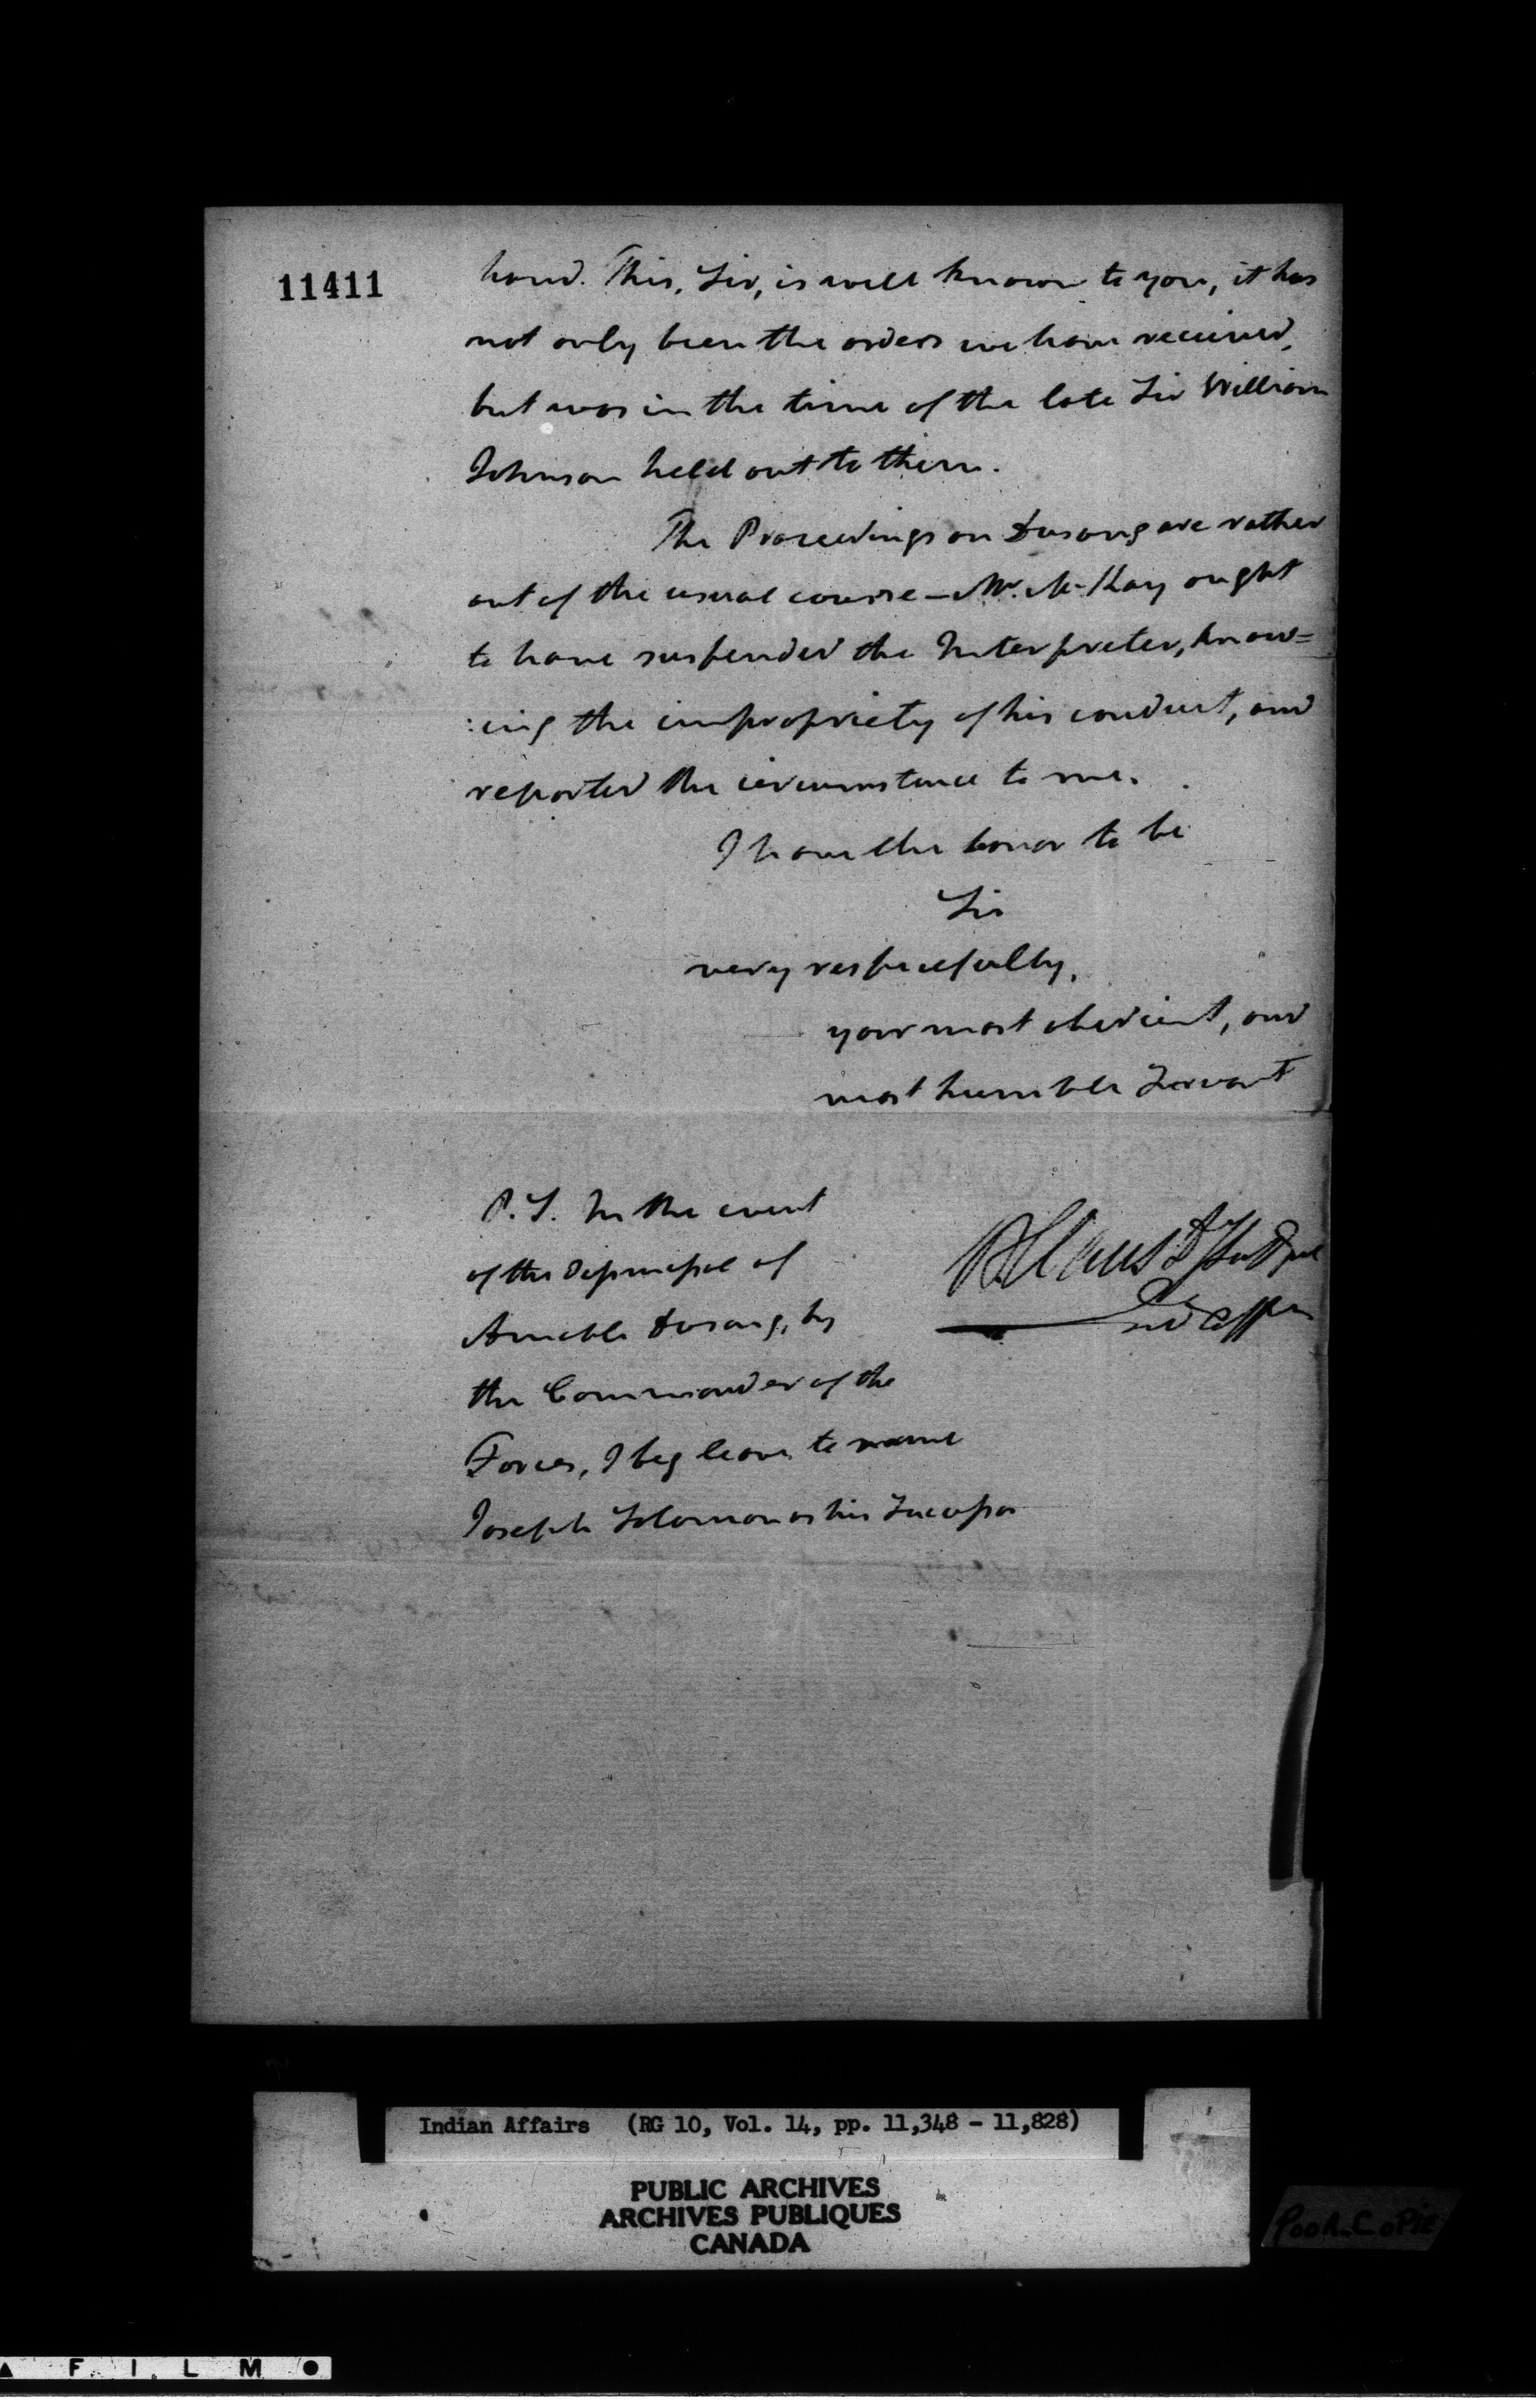 11411
hand. This, Sir, is well known to you, it has
not only been the orders we have received,
but was in the time of the late Sir William
Johnson held out to them.
The Proceedings on Dusang are rather
out of the usual course — Mr. McKay ought
to have suspended the Interpreter, know=
:ing the impropriety of his conduct, and
reported the circumstance to me.
I have the honor to be
Sir
very respectfully,
your most obedient, and
most humble Servant
P.S. In the event
of the dismissal of
Amable Dusang, by
the Commander of the
Forces, I beg leave to name
Joseph Solomon as his Successor
W Claus D
Ind Affrs
Indian Affairs (RG 10, Vol. 14, pp. 11,348 - 11,828)
PUBLIC ARCHIVES
ARCHIVES PUBLIQUES
CANADA
POOR COPIE
FILM